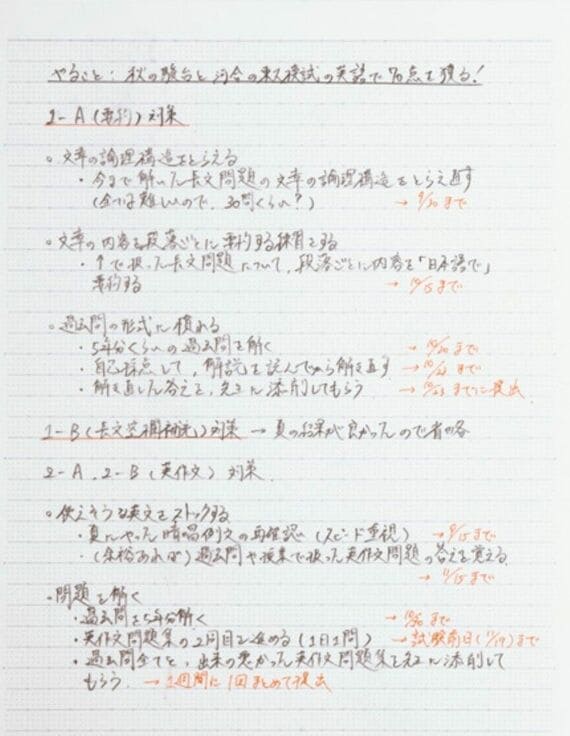 やること：秋の駿台と河合の東大模試の英語で70点を獲る！
1-A（要約）対策
○文章の論理構造をとらえる
・今まで解いた長文問題の文章の論理構造をとらえ直す
（全ては難しいので、30問くらい？） → 9/30まで
○文章の内容を段落ごとに要約する練習をする
・↑で扱った長文問題について、段落ごとに内容を「日本語で」
要約する → 10/15まで
○過去問の形式に慣れる
・5年分くらいの過去問を解く → 10/20まで
・自己採点して、解説を読んでから解き直す → まで
・解き直した答えを、先生に添削してもらう → までに提出
1-B（長文空欄補充）対策 → 夏の結果が良かったので省略
2-A、2-B（英作文）対策
○使えそうな英文をストックする
・夏にやった暗唱例文の再確認（スピード重視） → 9/15まで
・（余裕あれば）過去問や授業で扱った英作文問題の答えを覚える
→ 11/15まで
○問題を解く
・過去問を5年分解く → まで
・英作文問題集の2回目を進める（1日1問） → 試験前日（11/19）まで
・過去問全てと、出来の悪かった英作文問題集を先生に添削して
もらう → 1週間に1回まとめて提出